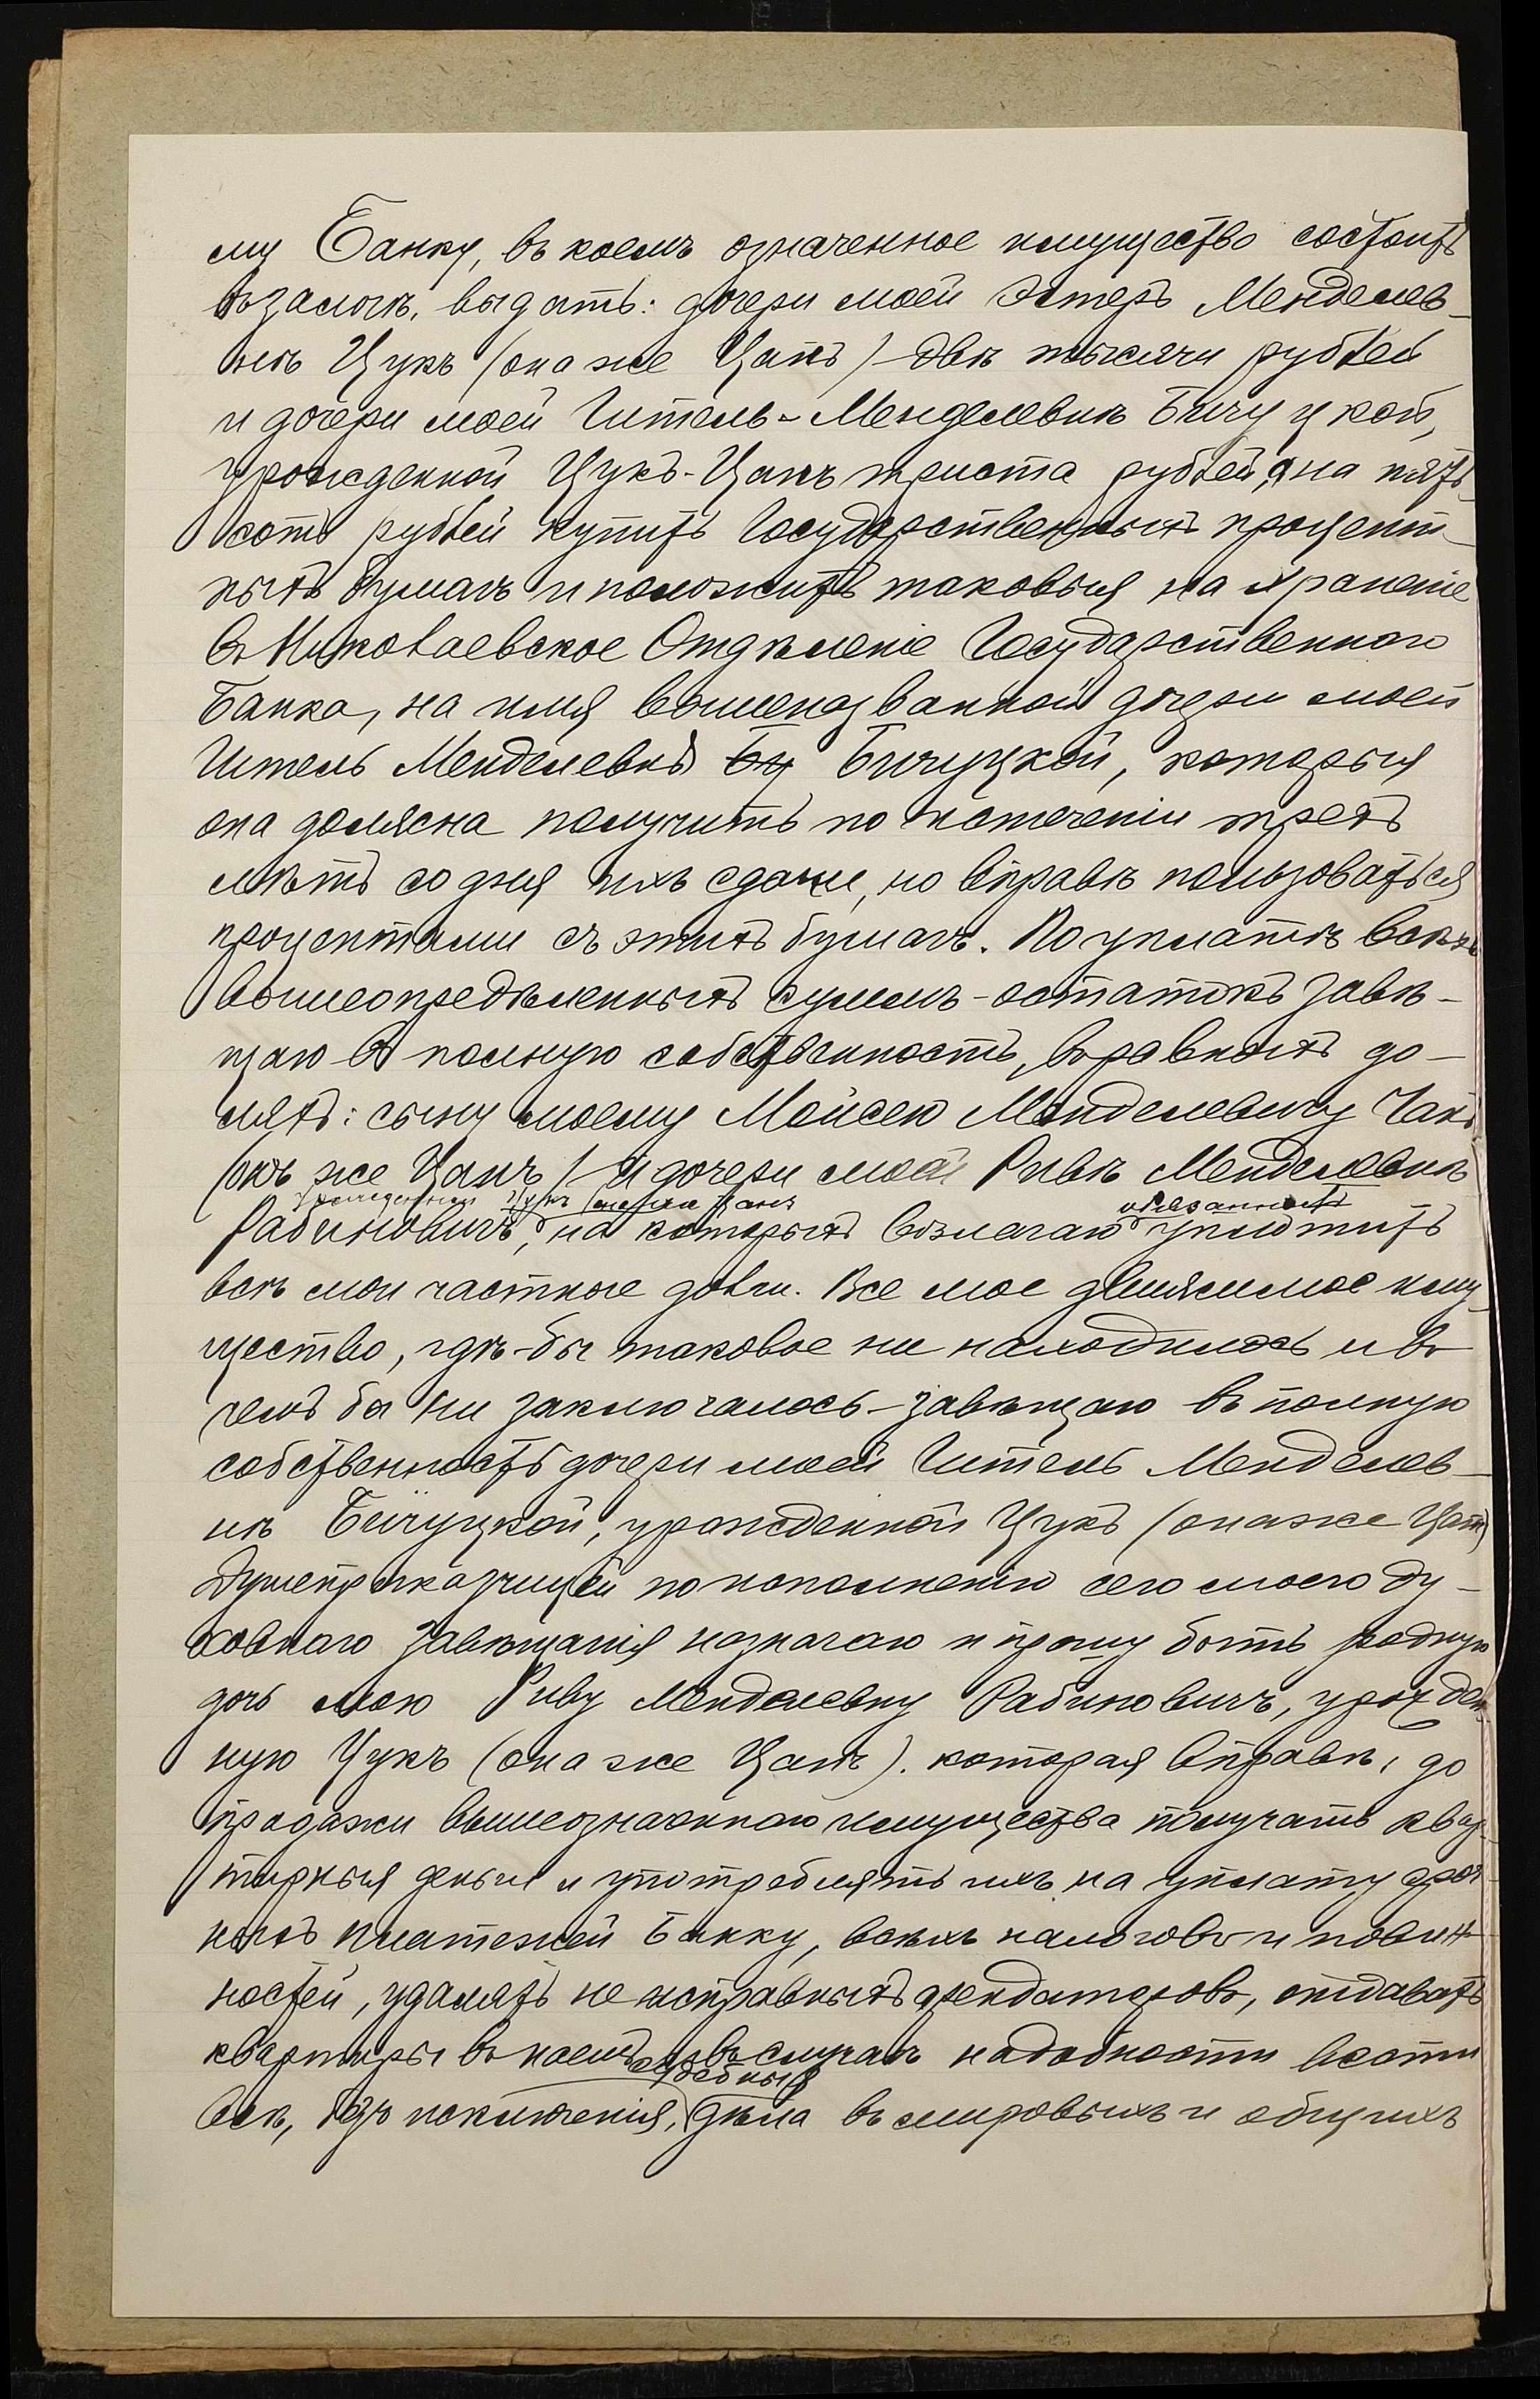 му Банку, въ коемъ означенное имущество состоитъ
въ залогѣ, выдать: дочери моей Эстерѣ Менделев-
нѣ Цукъ (она же Цапъ) - двѣ тысячи рублей
и дочери моей Гитель-Менделевнѣ Бичуцкой,
урожденной Цукъ-Цапъ триста рублей, а на пять-
сотъ рублей купить Государственныхъ процент-
ныхъ бумагъ и положить таковыя на храненіе
въ Николаевское Отдѣленіе Государственнаго
Банка, на имя вышеназванной дочери моей
Гитель Менделевны Бу Бичуцкой, которыя
она должна получить по истеченіи трехъ
лѣтъ со дня ихъ сдачи, но вправѣ пользоваться
процентами съ этихъ бумагъ. По уплатѣ всѣхъ
вышеопредѣленныхъ суммъ - остатокъ завѣ-
щаю въ полную собственность, въ равныхъ до-
ляхъ: сыну моему Мойсею Менделевичу Чакъ
(онъ же Цапъ) и дочери моей Ривѣ Менделевнѣ
урожденной Цукъ (она же Цапъ обязанность
Рабиновичъ, на которыхъ возлагаю уплотить
всѣ мои частные долги. Все мое движимое иму-
щество, гдѣ-бы таковое ни находилось и въ
чемъ бы ни заключалось - завѣщаю въ полную
собственность дочери моей Гитель Менделев-
нѣ Бичуцкой, урожденной Цукъ (она же Цапъ)
Душеприказчицей по исполненію сего моего ду-
ховнаго завѣщанія назначаю и прошу быть родную
дочь мою Риву Менделевну Рабиновичъ, урожден-
ную Цукъ (она же Цапъ). которая вправѣ, до
продажи вышеозначеннаго имущества получать квар-
тирныя деньги и употреблять ихъ на уплату сроч-
ныхъ платежей Банку, всѣхъ налоговъ и повин-
ностей, удалять неисправныхъ арендаторовъ, отдавать
квартиры въ наемъ, въ случаѣ надобности вести
судебныя
всѣ, безъ исключенія, дѣла въ мировыхъ и общихъ